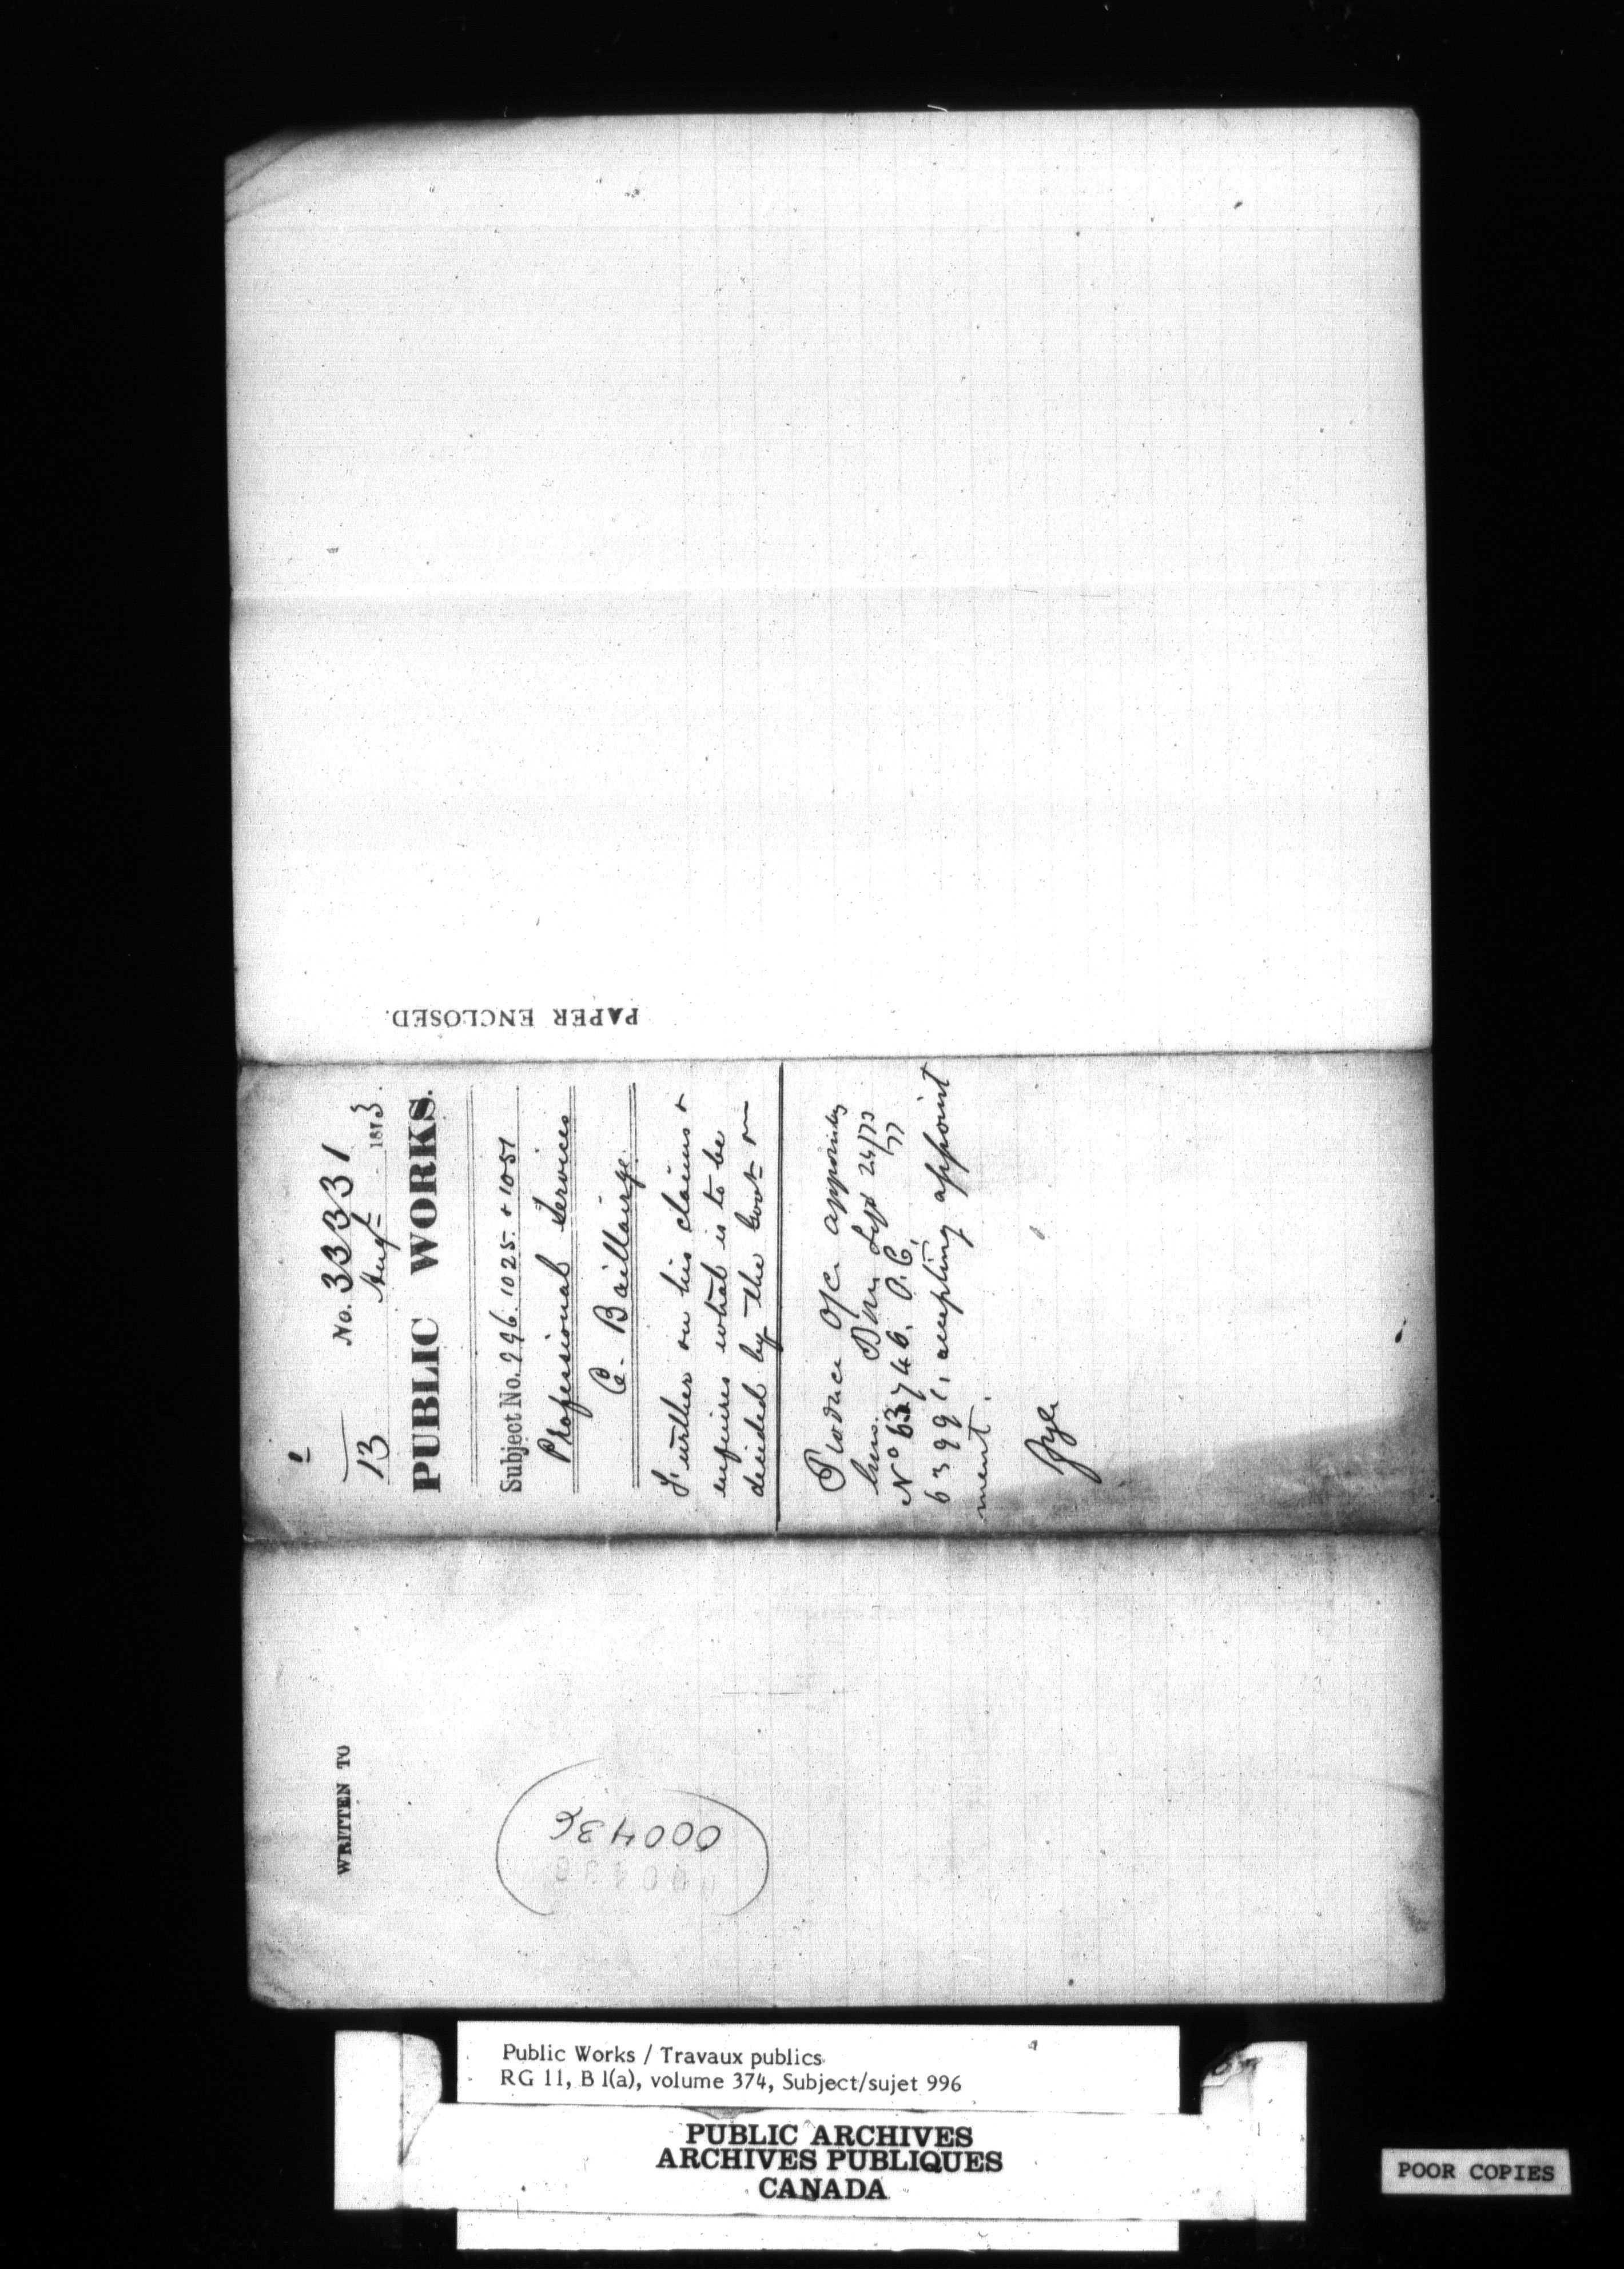 PAPER ENCLOSED.
No. 33331
13 Augt 1873.
PUBLIC WORKS.
Subject No. 996. 1025 + 1051
Professional Services
C. Baillairgé.
Further on his claims +
enquires what is to be
decided by the Govt
Produce O/C. appointing
him. Sept 24/73
No 63746. O.C.
63991, accepting appoint
ment.
WRITTEN TO
000436
Public Works / Travaux publics
RG 11, B 1(a), volume 374, Subject/sujet 996
PUBLIC ARCHIVES
ARCHIVES PUBLIQUES
CANADA
POOR COPIES